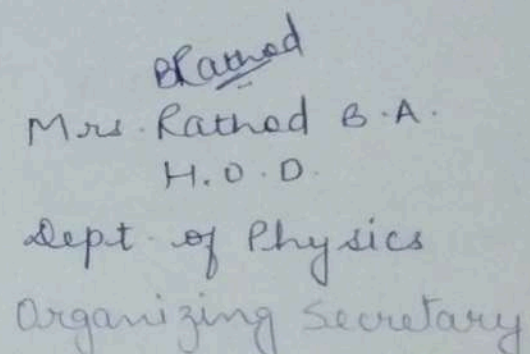 BRathod
Mrs. Rathod B.A.
H.O.D.
Dept. of Physics
Organizing Secretary